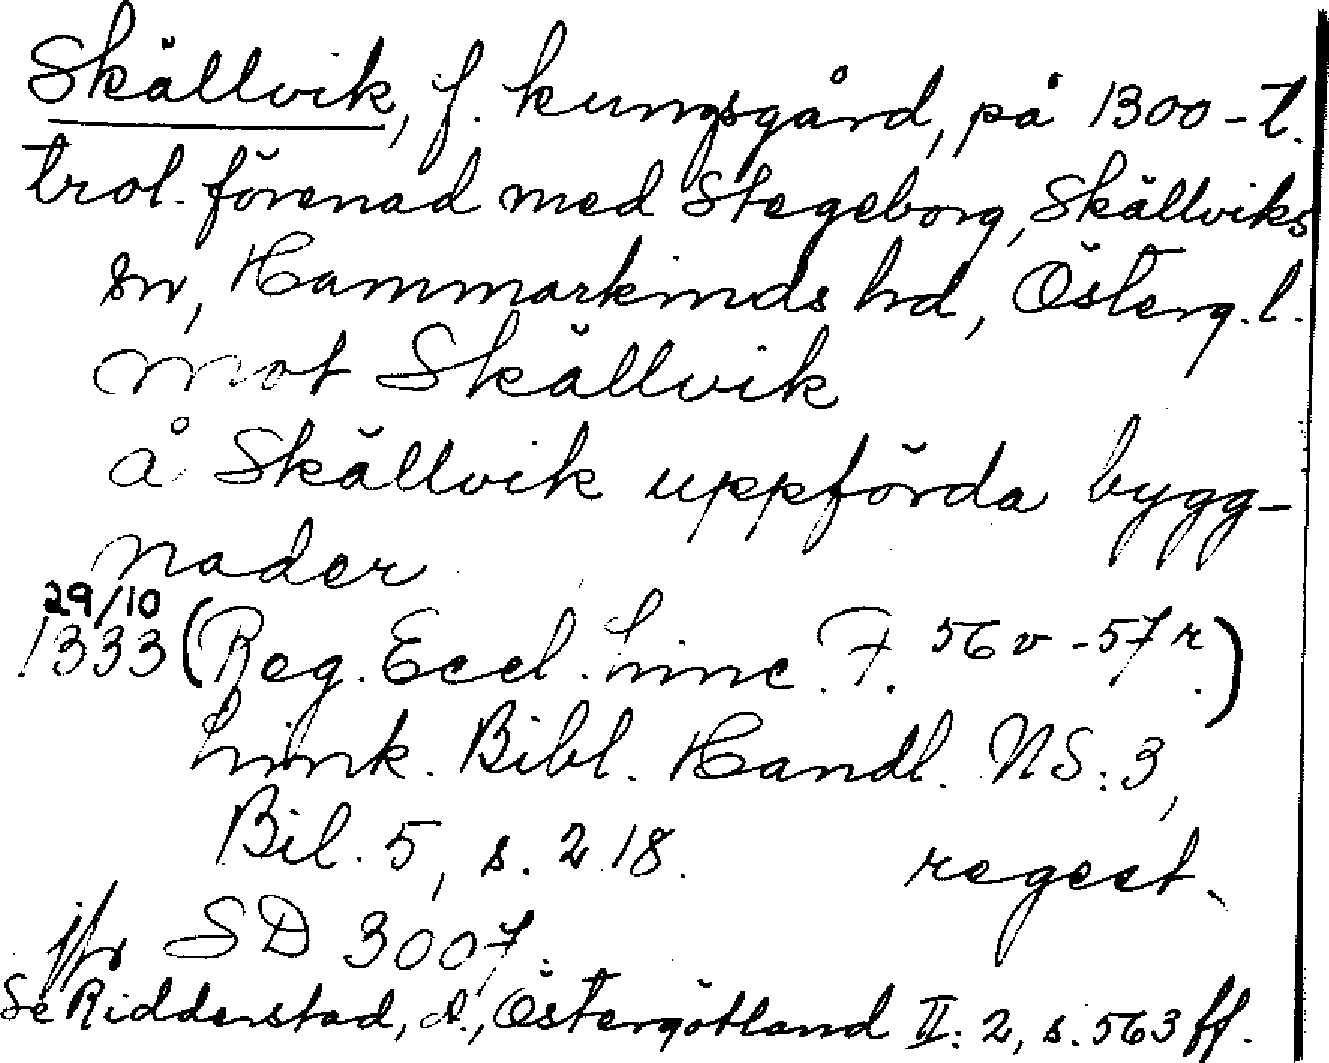 Skällvik, f. kungsgård, på 1300-t.
trol. förenad med Stegeborg, Skällviks
sn, Hammarkinds hd, Österg.l.
mot Skällvik
å Skällvik uppförda bygg-
nader
29/10
1333 (Reg. Eccl. Linc. F. 56v-57r.)
Link. Bibl. Handl. NS:3,
Bil. 5, s. 218. regest.
jfr SD 3007.
Se Ridderstad, A., Östergötland II:2, s. 563 ff.